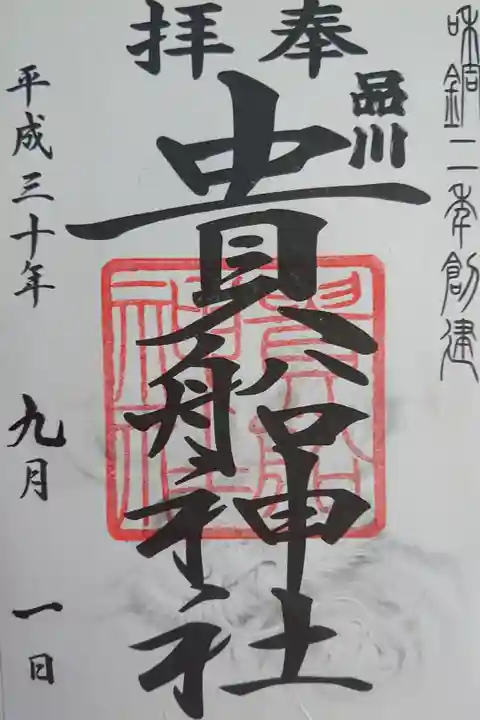 和銅二年創建
奉拝
品川
貴船神社
貴船神社
平成三十年 九月 一日